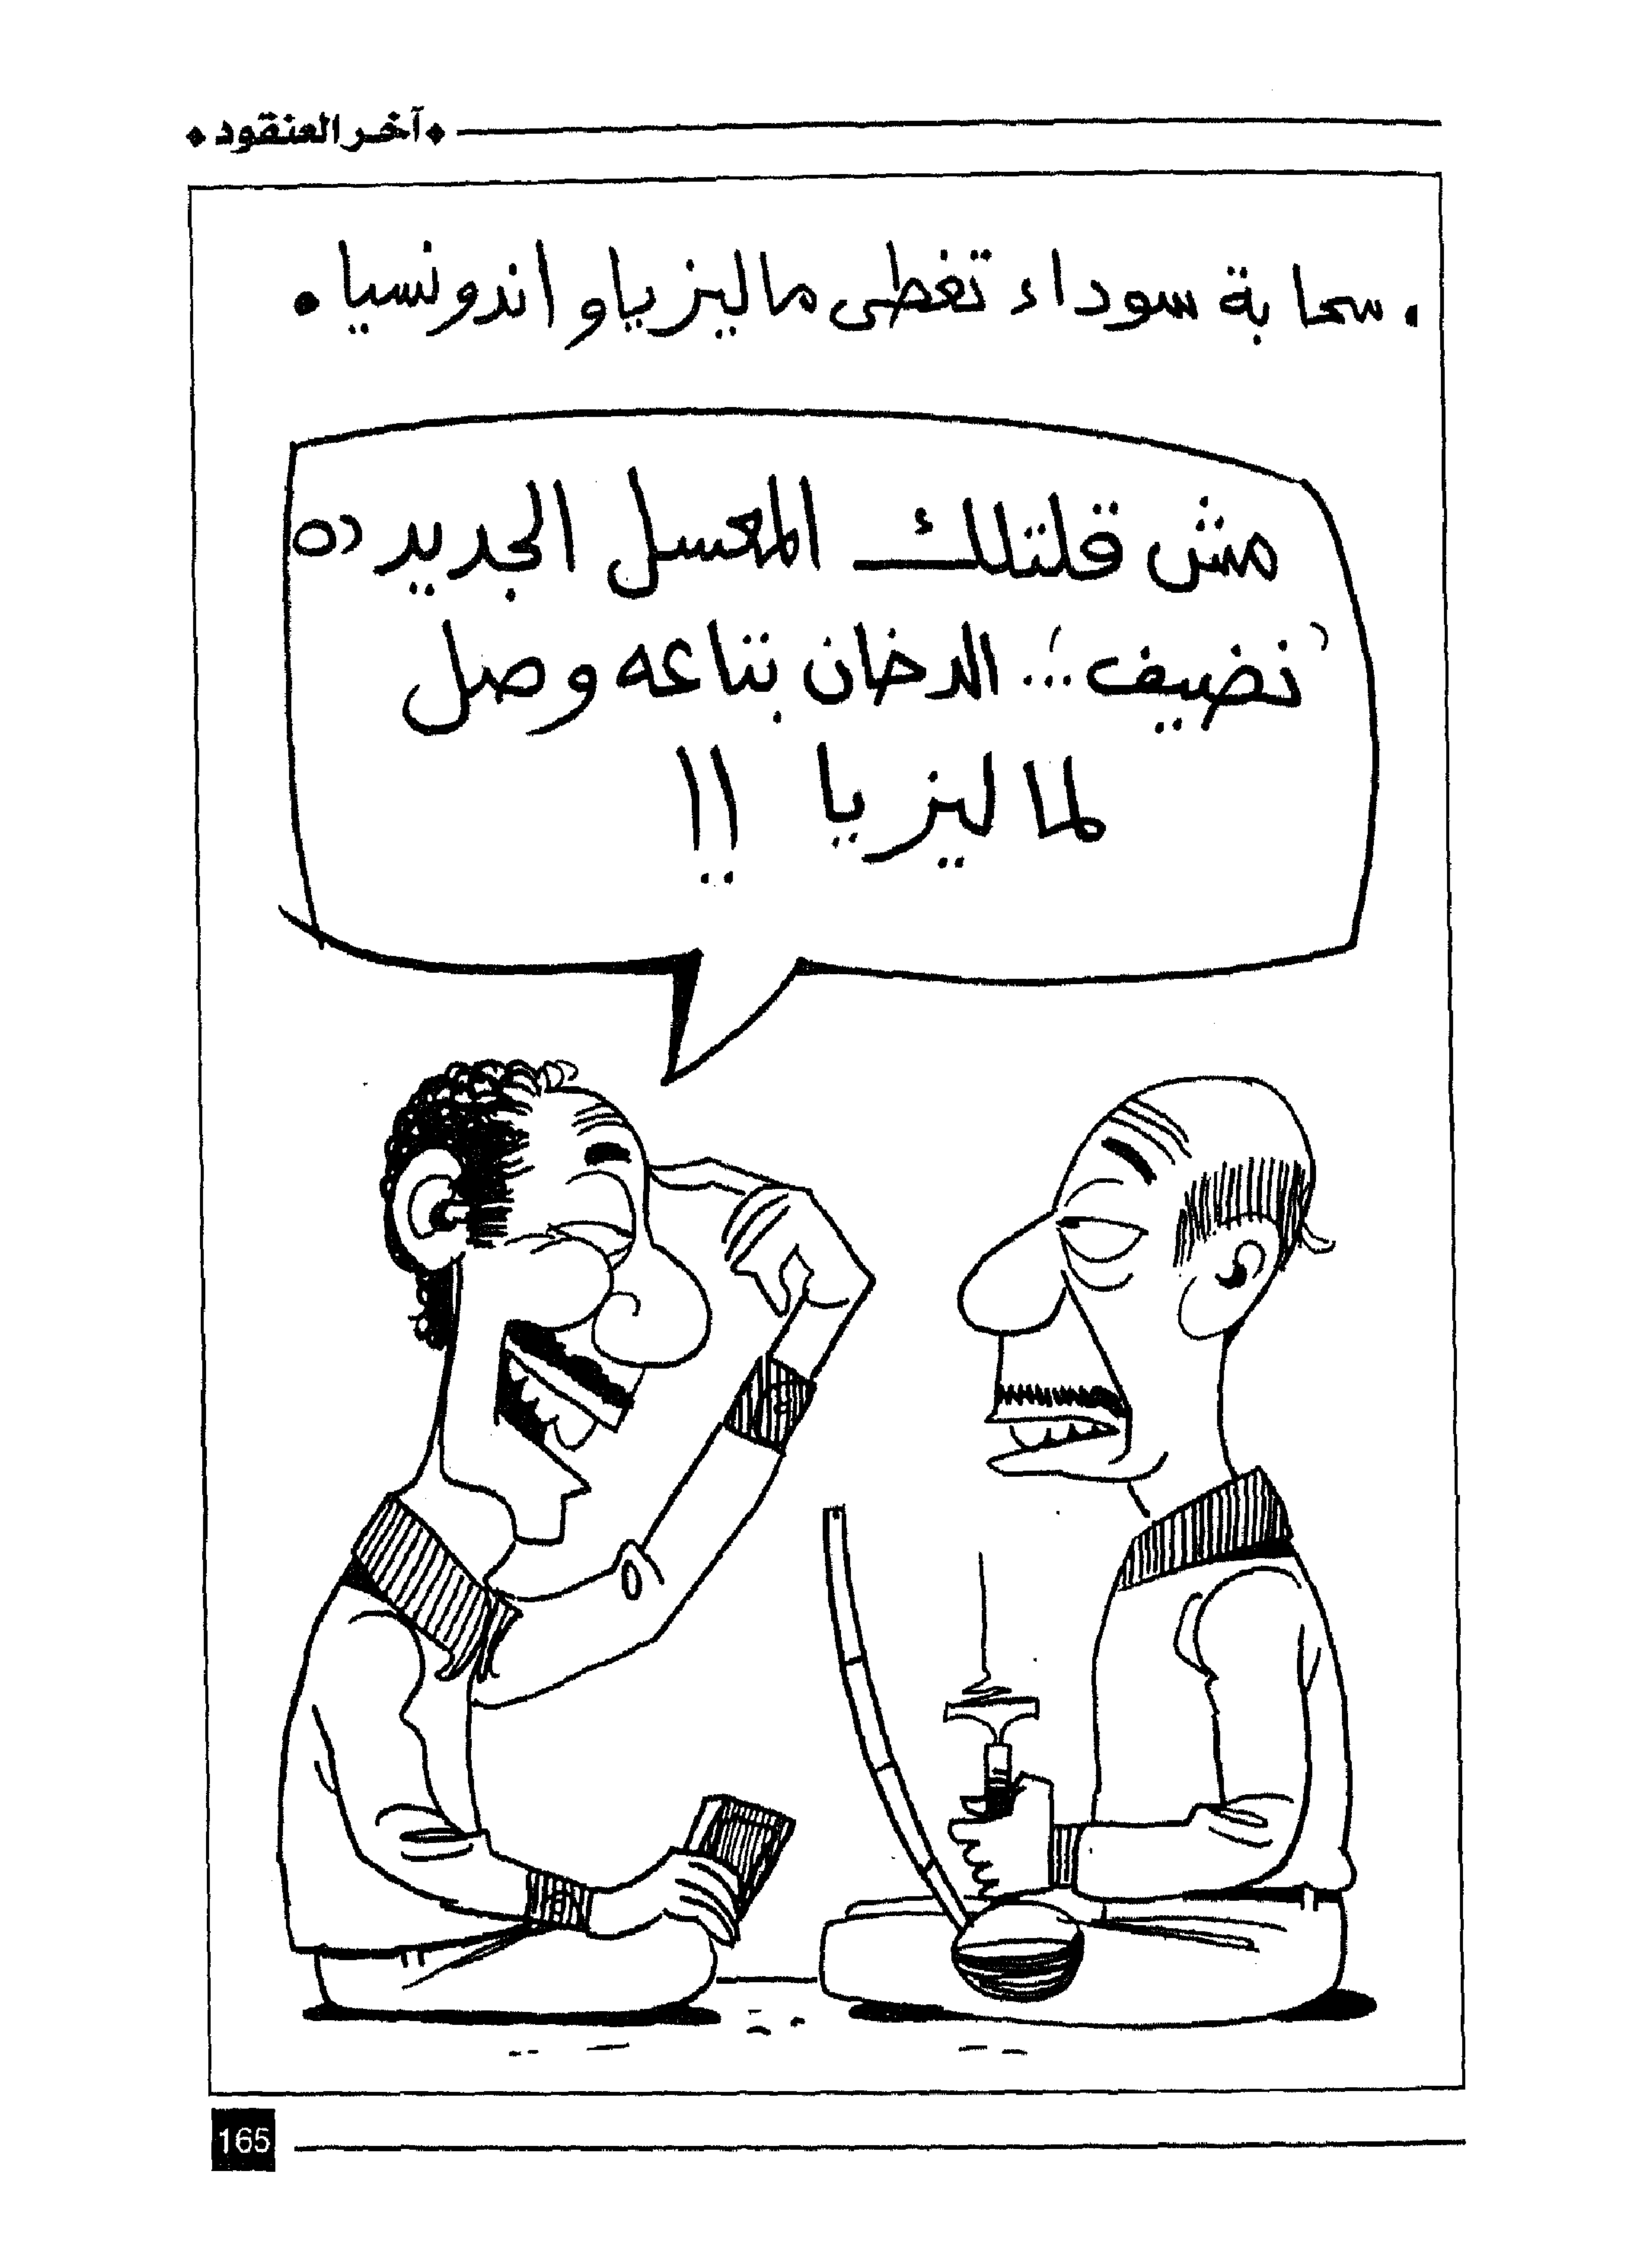 آخر العنقود
• سحابة سوداء تغطى ماليزيا واندونسيا •
مش قلتلك المعسل الجديد ده
"نضيف".. الدخان بتاعه وصل
لماليزيا !!
165